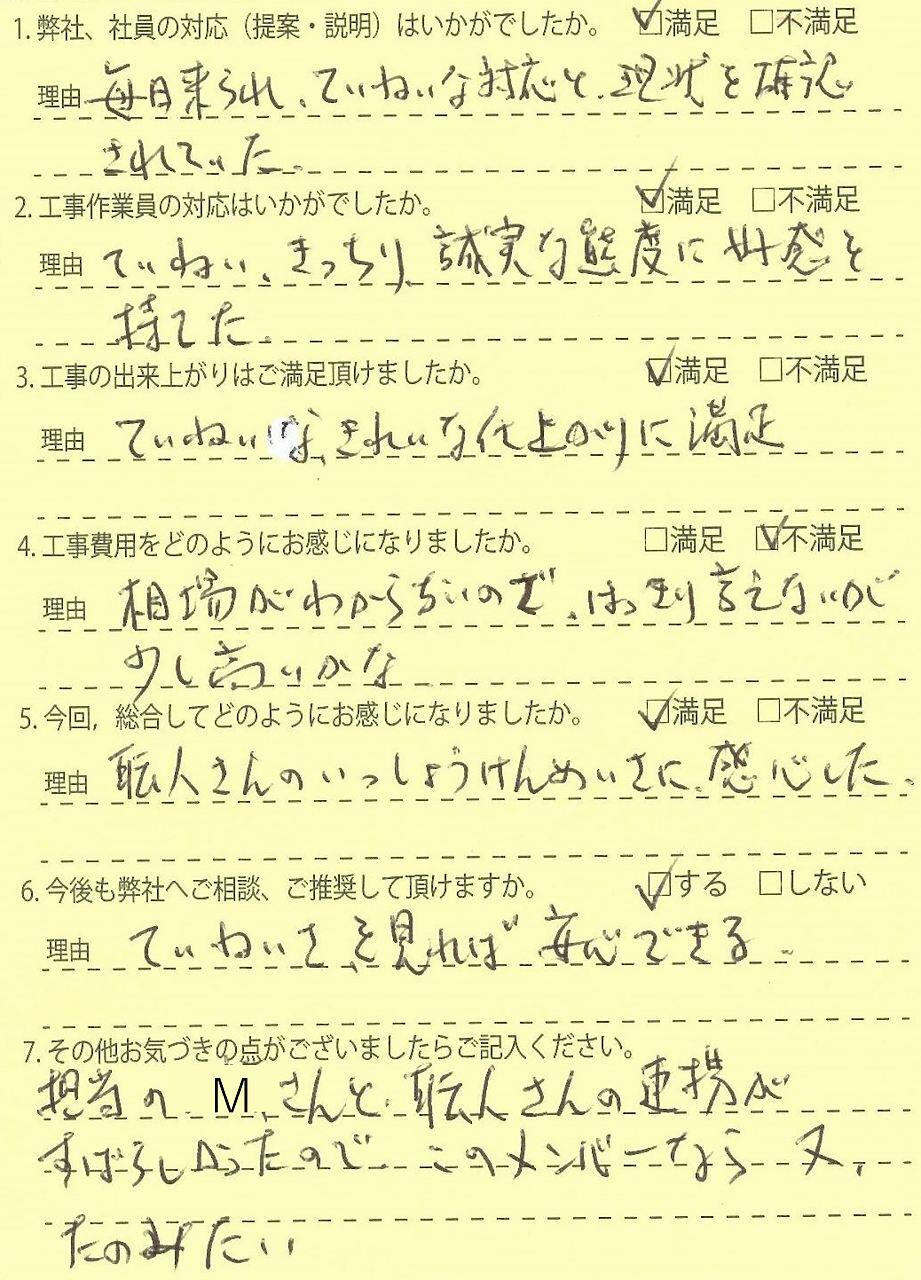 1. 弊社、社員の対応（提案・説明）はいかがでしたか。 ☑満足 □不満足
理由 毎日来られ、ていねいな対応と、現状を確認
されていた。
2. 工事作業員の対応はいかがでしたか。 ☑満足 □不満足
理由 ていねい、きっちり、誠実な態度に好感を
持てた。
3. 工事の出来上がりはご満足頂けましたか。 ☑満足 □不満足
理由 ていねいな、きれいな仕上がりに満足
4. 工事費用をどのようにお感じになりましたか。 □満足 ☑不満足
理由 相場がわからないので、はっきり言えないが
少し高いかな
5. 今回，総合してどのようにお感じになりましたか。 ☑満足 □不満足
理由 職人さんのいっしょうけんめいさに、感心した。
6. 今後も弊社へご相談、ご推奨して頂けますか。 ☑する □しない
理由 ていねいさを見れば安心できる。
7. その他お気づきの点がございましたらご記入ください。
担当の M さんと、職人さんの連携が
すばらしかったので、このメンバーなら又、
たのみたい